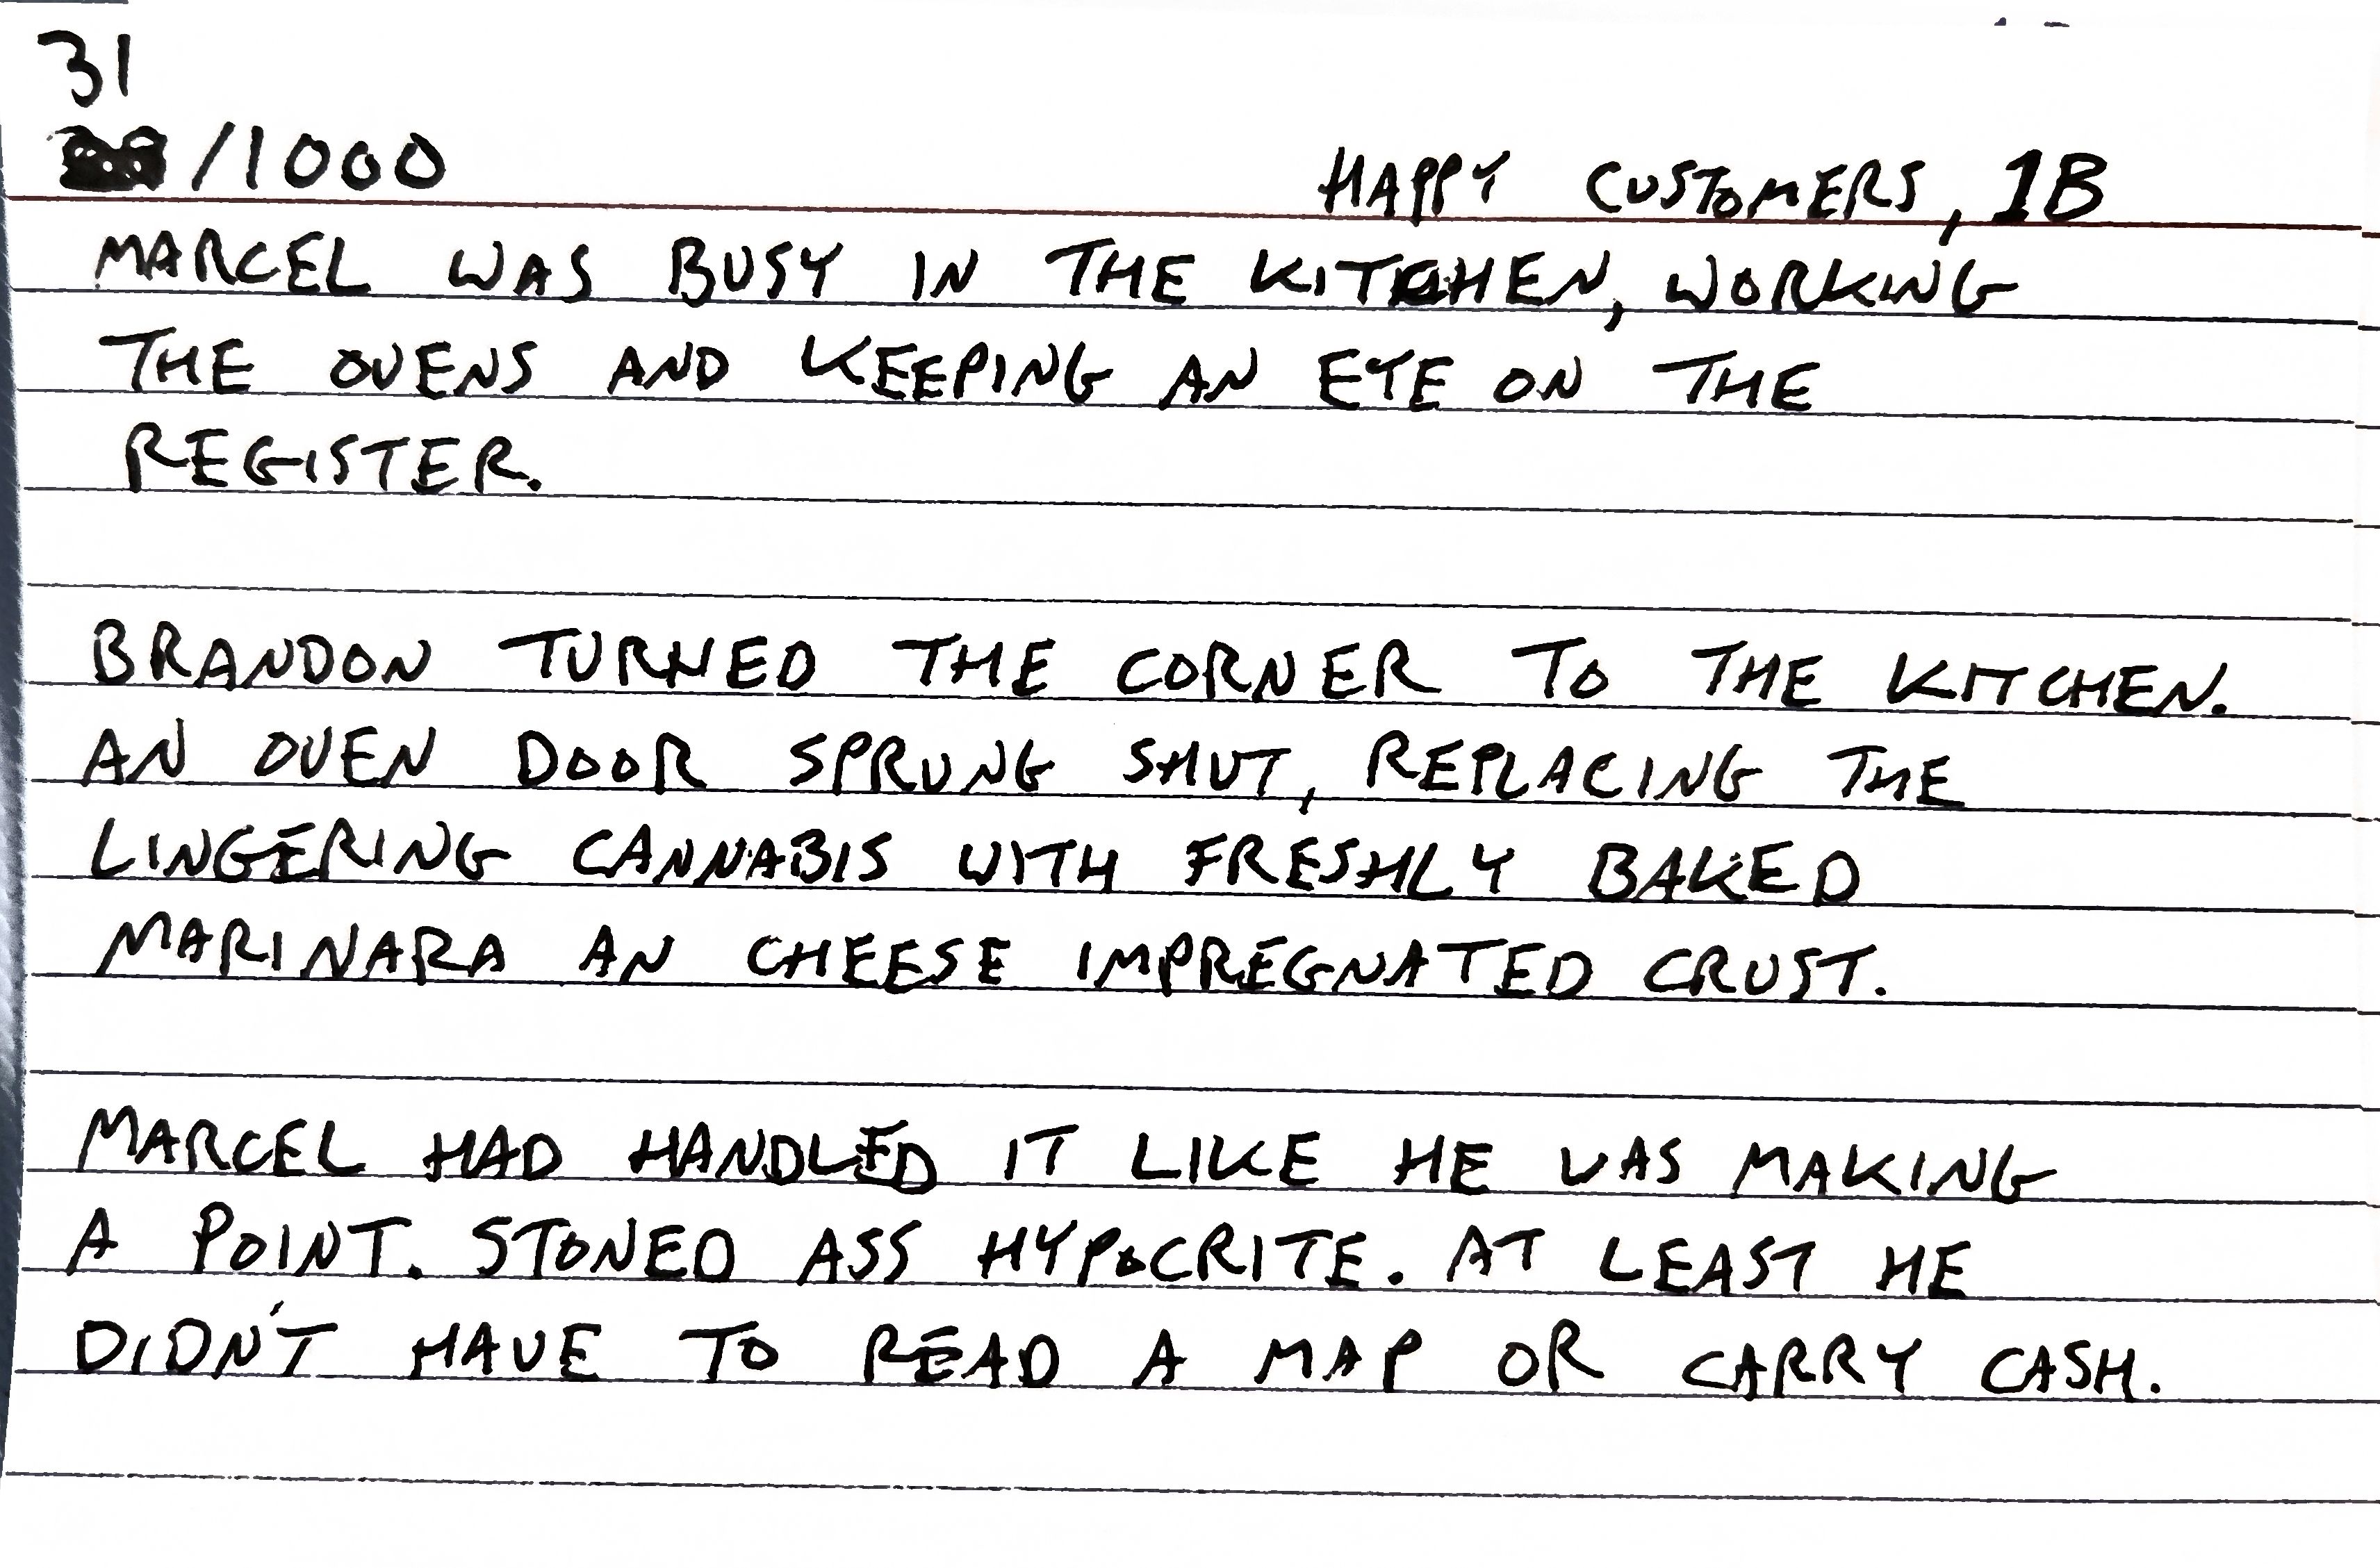 31
/1000
HAPPY CUSTOMERS, 1B
MARCEL WAS BUSY IN THE KITCHEN, WORKING
THE OVENS AND KEEPING AN EYE ON THE
REGISTER.
BRANDON TURNED THE CORNER TO THE KITCHEN.
AN OVEN DOOR SPRUNG SHUT, REPLACING THE
LINGERING CANNABIS WITH FRESHLY BAKED
MARINARA AN CHEESE IMPREGNATED CRUST.
MARCEL HAD HANDLED IT LIKE HE WAS MAKING
A POINT. STONED ASS HYPOCRITE. AT LEAST HE
DIDN'T HAVE TO READ A MAP OR CARRY CASH.